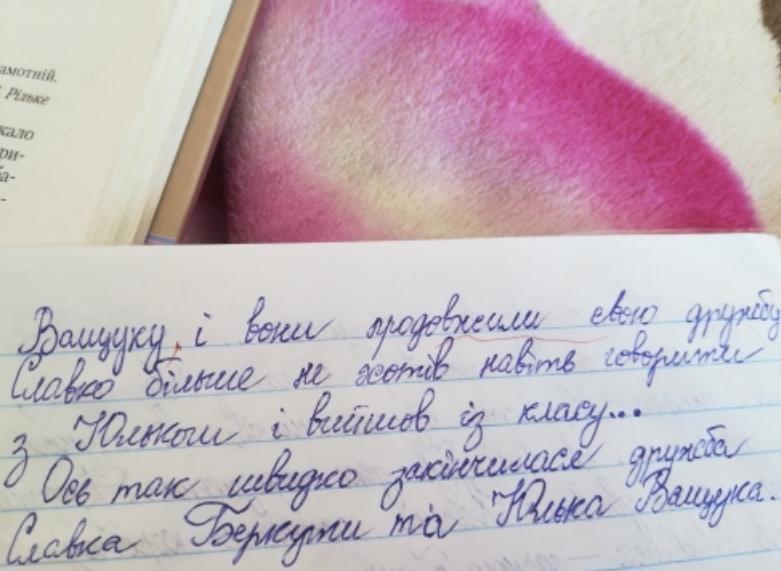 амотній.
Рільке
кало
ри-
ба-
Ващуку, і вони продовжили свою дружбу
Славко більше не хотів навіть говорити
з Юльком і вийшов із класу...
Ось так швидко закінчилася дружба
Славка Беркути та Юлька Ващука.